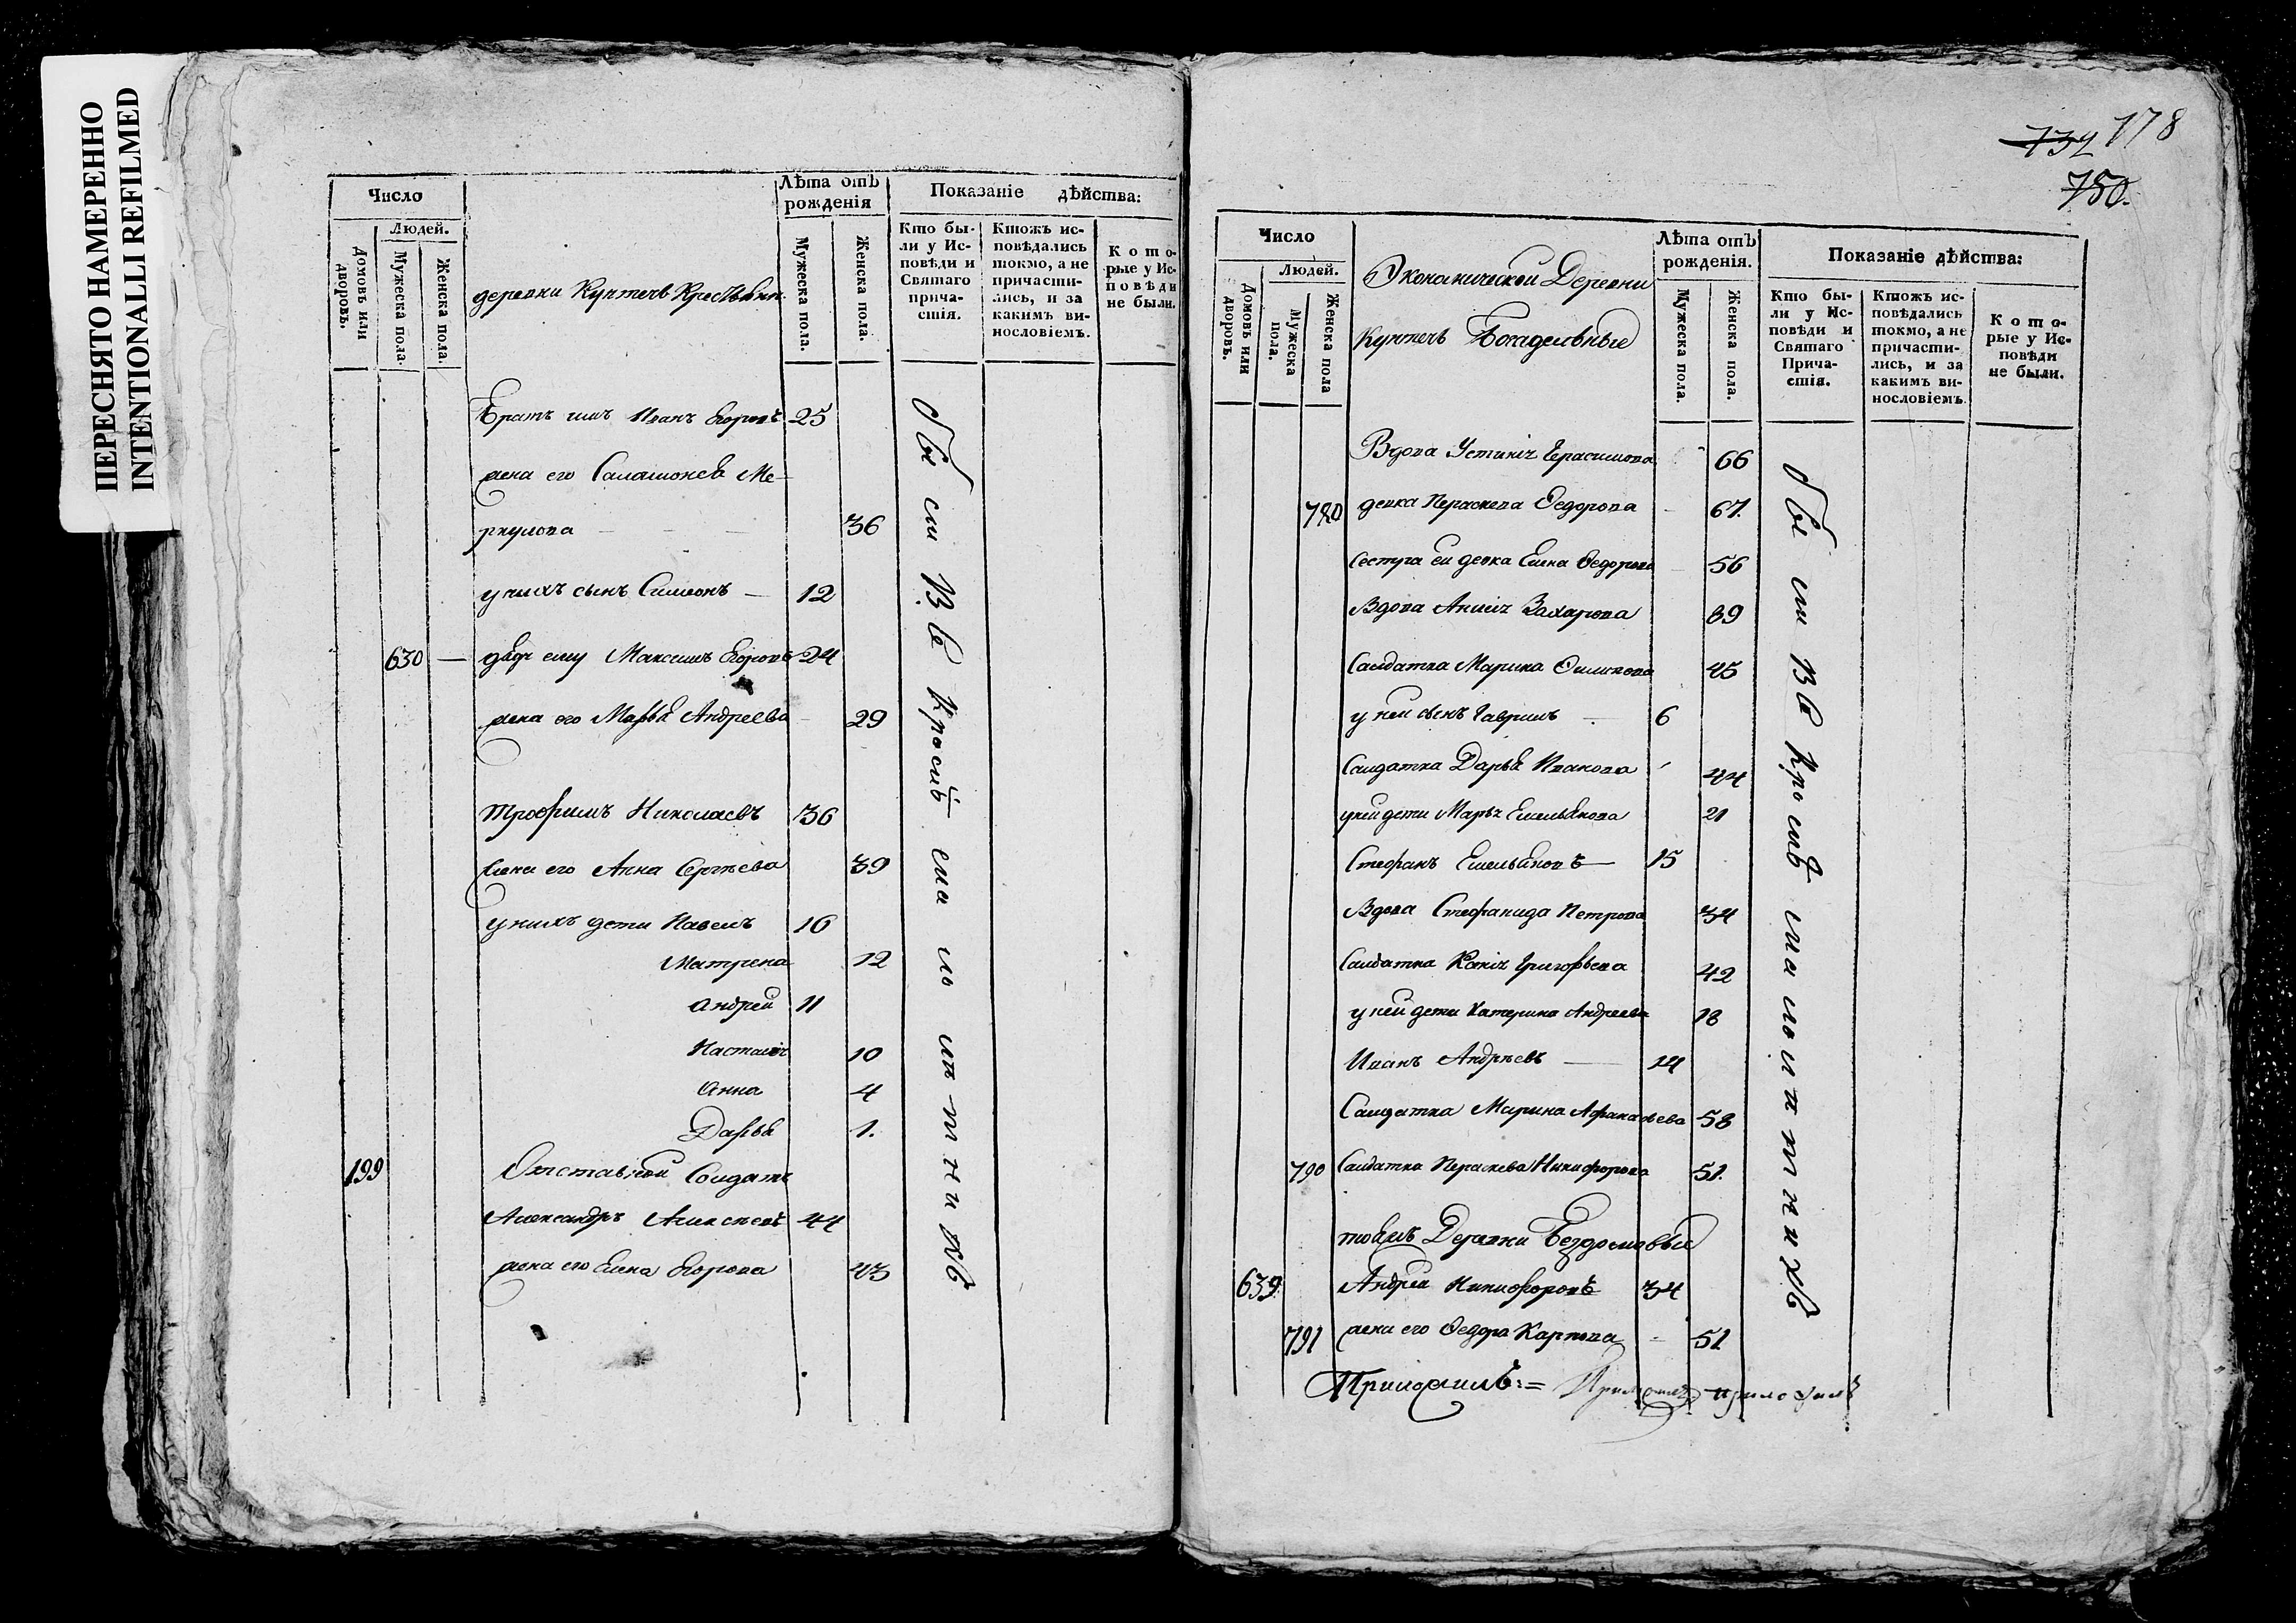 ПЕРЕСНЯТО НАМЕРЕННО
INTENTIONALLI REFILMED
Число
Людей.
Домовъ или дворовъ.
Мужеска пола.
Женска пола.
деревни Кунтечь Крестьяни
Лѣта отъ рожденія
Мужеска пола.
Женска пола.
Показаніе дѣйства:
Кто были у Исповѣди и Святаго причастія.
Ктожъ исповѣдались токмо, а не причастились, и за какимъ винословіемъ.
Которые у Исповѣди не были.
Братъ имъ Иванъ Егоровъ 25
жена его Саламонея Ме-
ркулова 36
у нихъ сынъ Симеонъ — 12
630 — дядя ему Максимъ Егоровъ 24
жена его Марья Андреева 29
Трофимъ Николаевъ 36
жена его Анна Сергѣева 39
у нихъ дети Павелъ 16
Матрена 12
Андрей 11
Настасія 10
Анна 4
Дарья 1.
199 Отставной Солдатъ
Александръ Алексѣевъ 44
жена его Елена Егорова 43
732 178
750.
Число
Людей.
Домовъ или дворовъ.
Мужеска пола.
Женска пола
Экономической Деревни
Кунтечь Богадельные
Лѣта отъ рожденія.
Мужеска пола.
Женска пола.
Показаніе дѣйства:
Кто были у Исповѣди и Святаго Причастія.
Ктожъ исповѣдались токмо, а не причастились, и за какимъ винословіемъ.
Которые у Исповѣди не были.
Вдова Устинія Герасимова 66
780 девка Парасковя Федорова 67.
Сестра ей девка Елена Федорова 56
Вдова Анисія Захарова 89
Салдатка Марина Филипова 45
у ней сынъ Гаврилъ 6
Салдатка Дарья Иванова 44
у ней дети Марья Емельянова 21
Стефанъ Емельяновъ — 15
Вдова Стефанида Петрова 34
Салдатка Ксенія Григорьева 42
у ней дети Катерина Андреева 18
Иванъ Андрѣевъ — 14
Салдатка Марина Афанасьева 58
790 Салдатка Парасковя Никифорова 51.
тояжъ Деревни Бездомовыя
639. Андрей Никифоровъ 34
791 жена его Федора Карпова 51